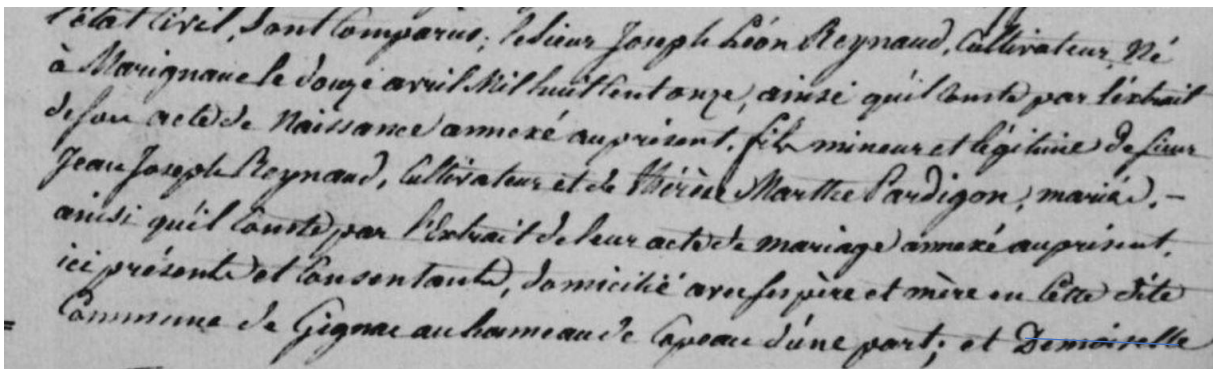 l'état Civil, sont Comparus; le sieur Joseph Léon Reynaud, Cultivateur, Né
à Marignane le douze avril Mil huit Cent onze, ainsi qu'il Conste par l'extrait
de son acte de Naissance annexé au présent, fils mineur et légitime de sieur
Jean Joseph Reynaud, Cultivateur et de Thérèse Marthe Pardigon, mariés, –
ainsi qu'il Conste par l'Extrait de leur acte de mariage annexé au présent,
ici présents et Consentants, domicilié avec ses père et mère en Cette dite
Commune de Gignac au hameau de Capeau d'une part; et Demoiselle